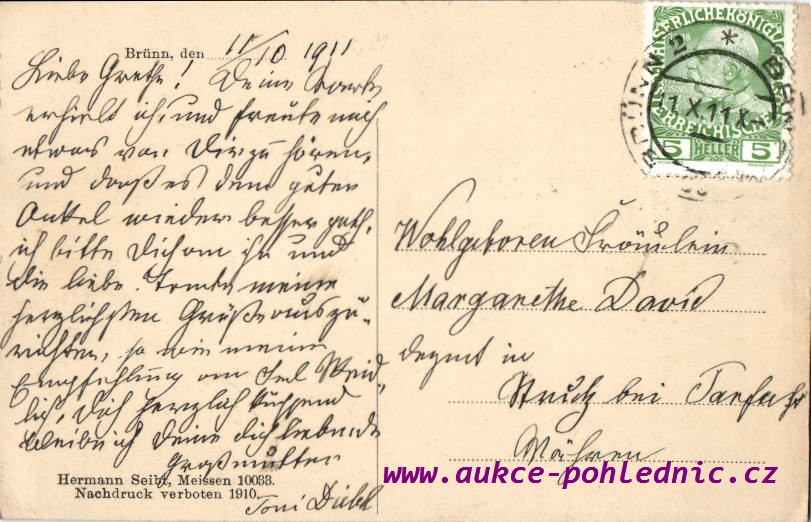 Brünn, den 11/10 1911
Liebe Grethe! Deine Karte
erhielt ich, und freute mich
etwas von Dir zu hören,
und daß es dem guten
Onkel wieder besser geht,
ich bitte Dich an ihn und
die liebe Tante meine
herzlichsten Grüße auszu-
richten, so wie meine
Empfehlung an
Dich herzlich küssend
bleibe ich Deine dich liebende
Großmutter
Toni
Hermann Seibt, Meissen 10088.
Nachdruck verboten 1910.
KAISERLICHE KÖNIGLICHE
ÖSTERREICHISCHE
5 HELLER 5
BRÜNN 2 * BRNO
11 X 11
Wohlgeboren Fräulein
Margarethe David
in
bei
Mähren
www.aukce-pohlednic.cz